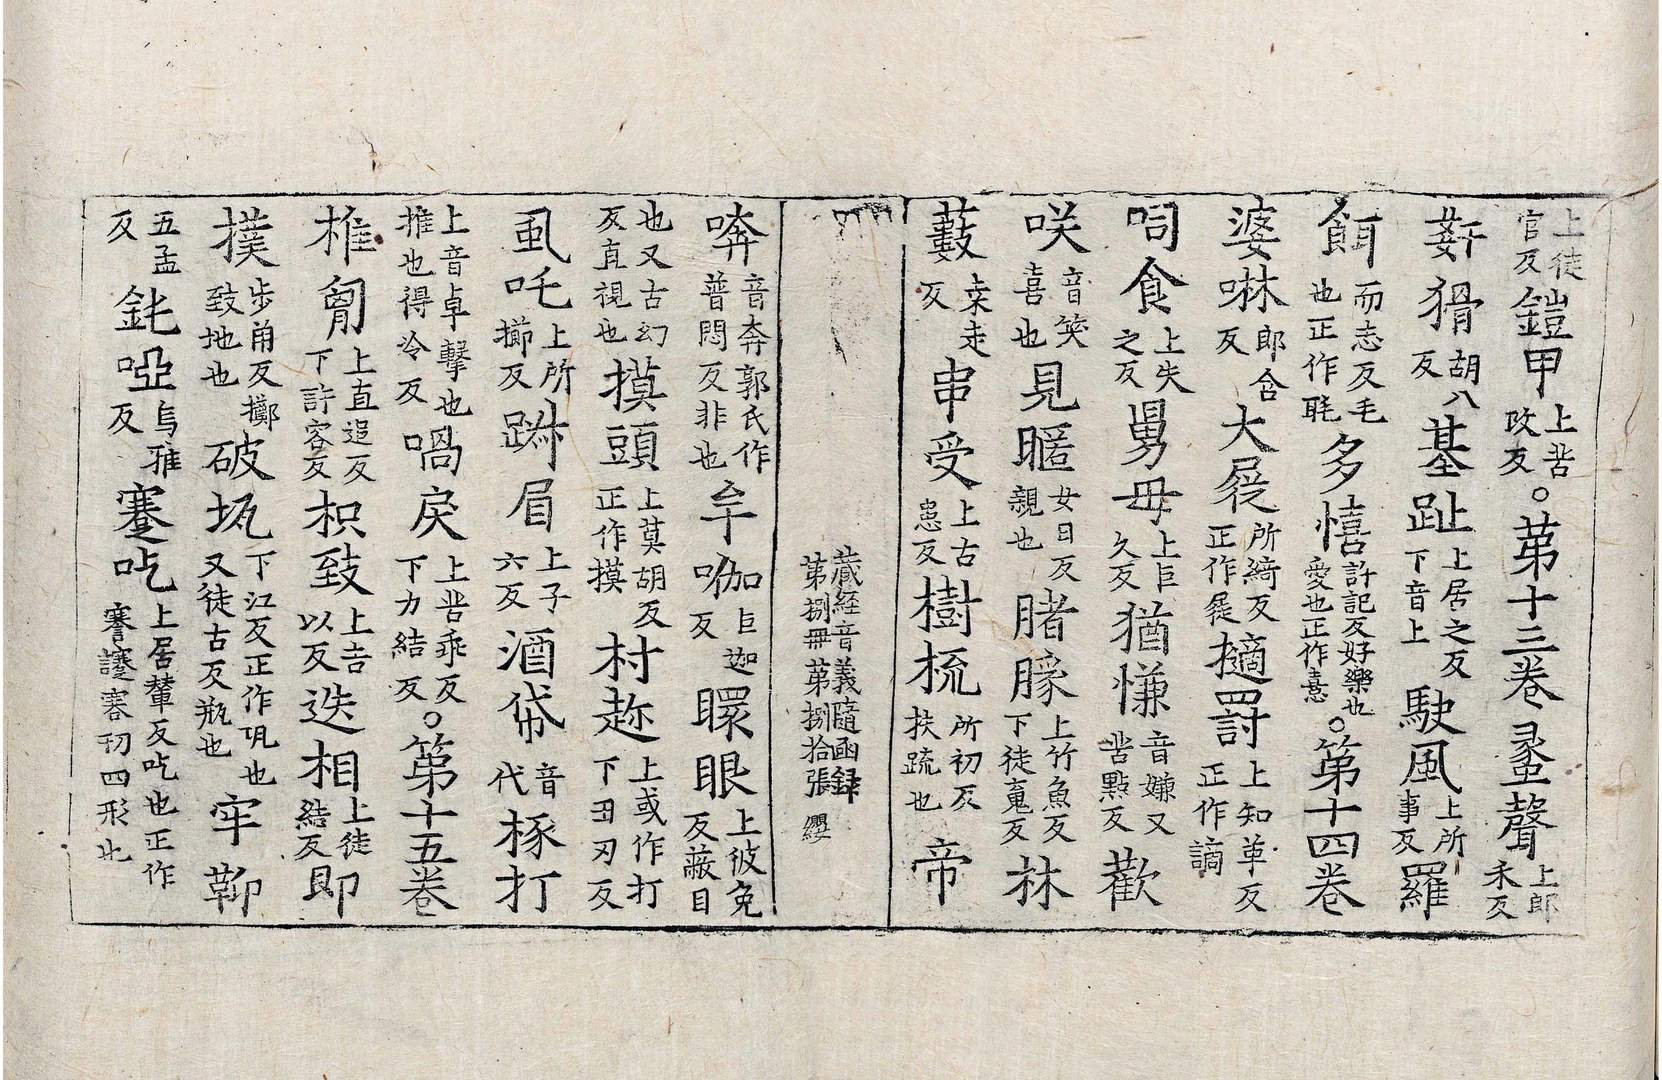 上徒官反鎧甲上苦改反。第十三卷蠡聲上郎禾反
姧猾胡八反基趾上居之反下音上駛風上所事反羅
餌而志反毛也正作毦多憘許記反好樂也愛也正作憙。第十四卷
婆啉郎含反大屣所綺反正作屣擿罰上知革反正作謫
呞食上失之反舅母上臼久反猶慊音嫌又苦點反歡
咲音笑喜也見暱女日反親也䐗䐁上竹魚反下徒䰟反林
藪桒走反串受上古患反樹梳所初反扶疏也帝
藏經音義隨函録第捌冊第捌拾張 纓
㖹音奔郭氏作普悶反非也牟㖿巨迦反睘眼上彼免反蔽目
也又古幻反直視也摸頭上莫胡反正作摸村趂上或作打下丑刃反
虱吒上所擳反踋眉上子六反酒帒音代椓打
上音卓擊也搉也得冷反喎戾上苦乖反下力結反。第十五卷
椎匈上直追反下許容反枳致上吉以反迭相上徒結反即
撲步角反擲致地也破坬下江反正作瓨也又徒古反瓶也牢䩕
五孟反㲉啞烏雅反蹇吃上居輦反吃也正作謇䜁㥶㓞四形也